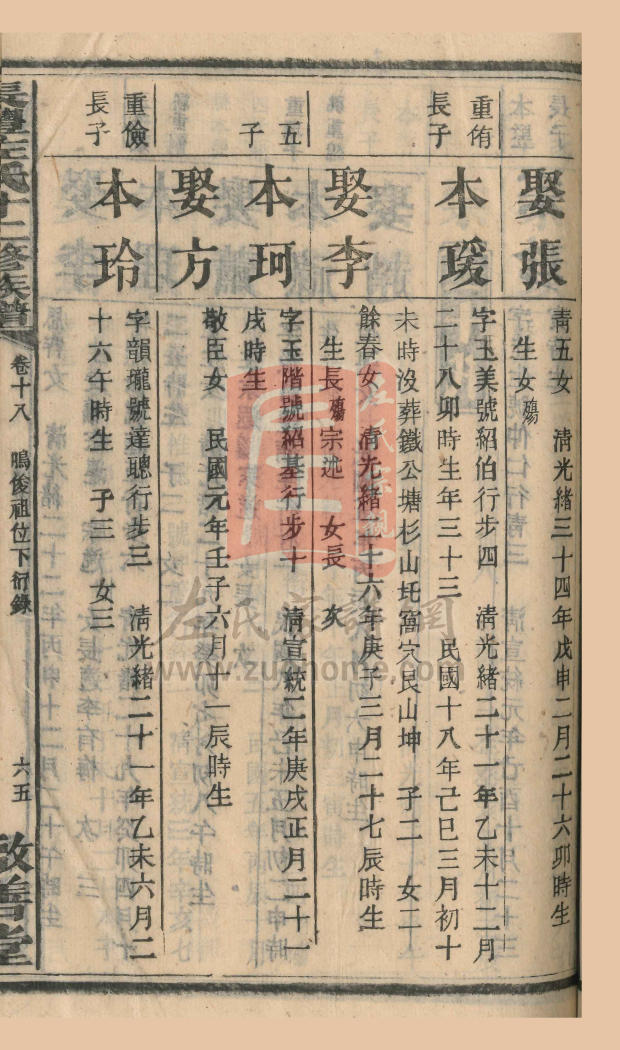 娶張
青五女 清光緒三十四年戊申二月二十六卯時生
生女殤
重侑
長子
本瑗
字玉美號紹伯行步四 清光緒二十一年乙未十二月
二十八卯時生年三十三 民國十八年己巳三月初十
未時沒葬鐵公塘杉山圫窩穴艮山坤 子二 女二
娶李
餘春女 清光緒二十六年庚子三月二十七辰時生
生長殤宗述 女長 次
五
子
本珂
字玉階號紹基行步十 清宣統二年庚戌正月二十一
戌時生
娶方
敬臣女 民國元年壬子六月十一辰時生
重儉
長子
本玲
字韻瓏號達聰行步三 清光緒二十一年乙未六月二
十六午時生 子三 女三
長澧左氏十二修族譜 卷十八 鳴俊祖位下衍錄 六五 啟善堂
左氏家譜網
www.zuohome.com